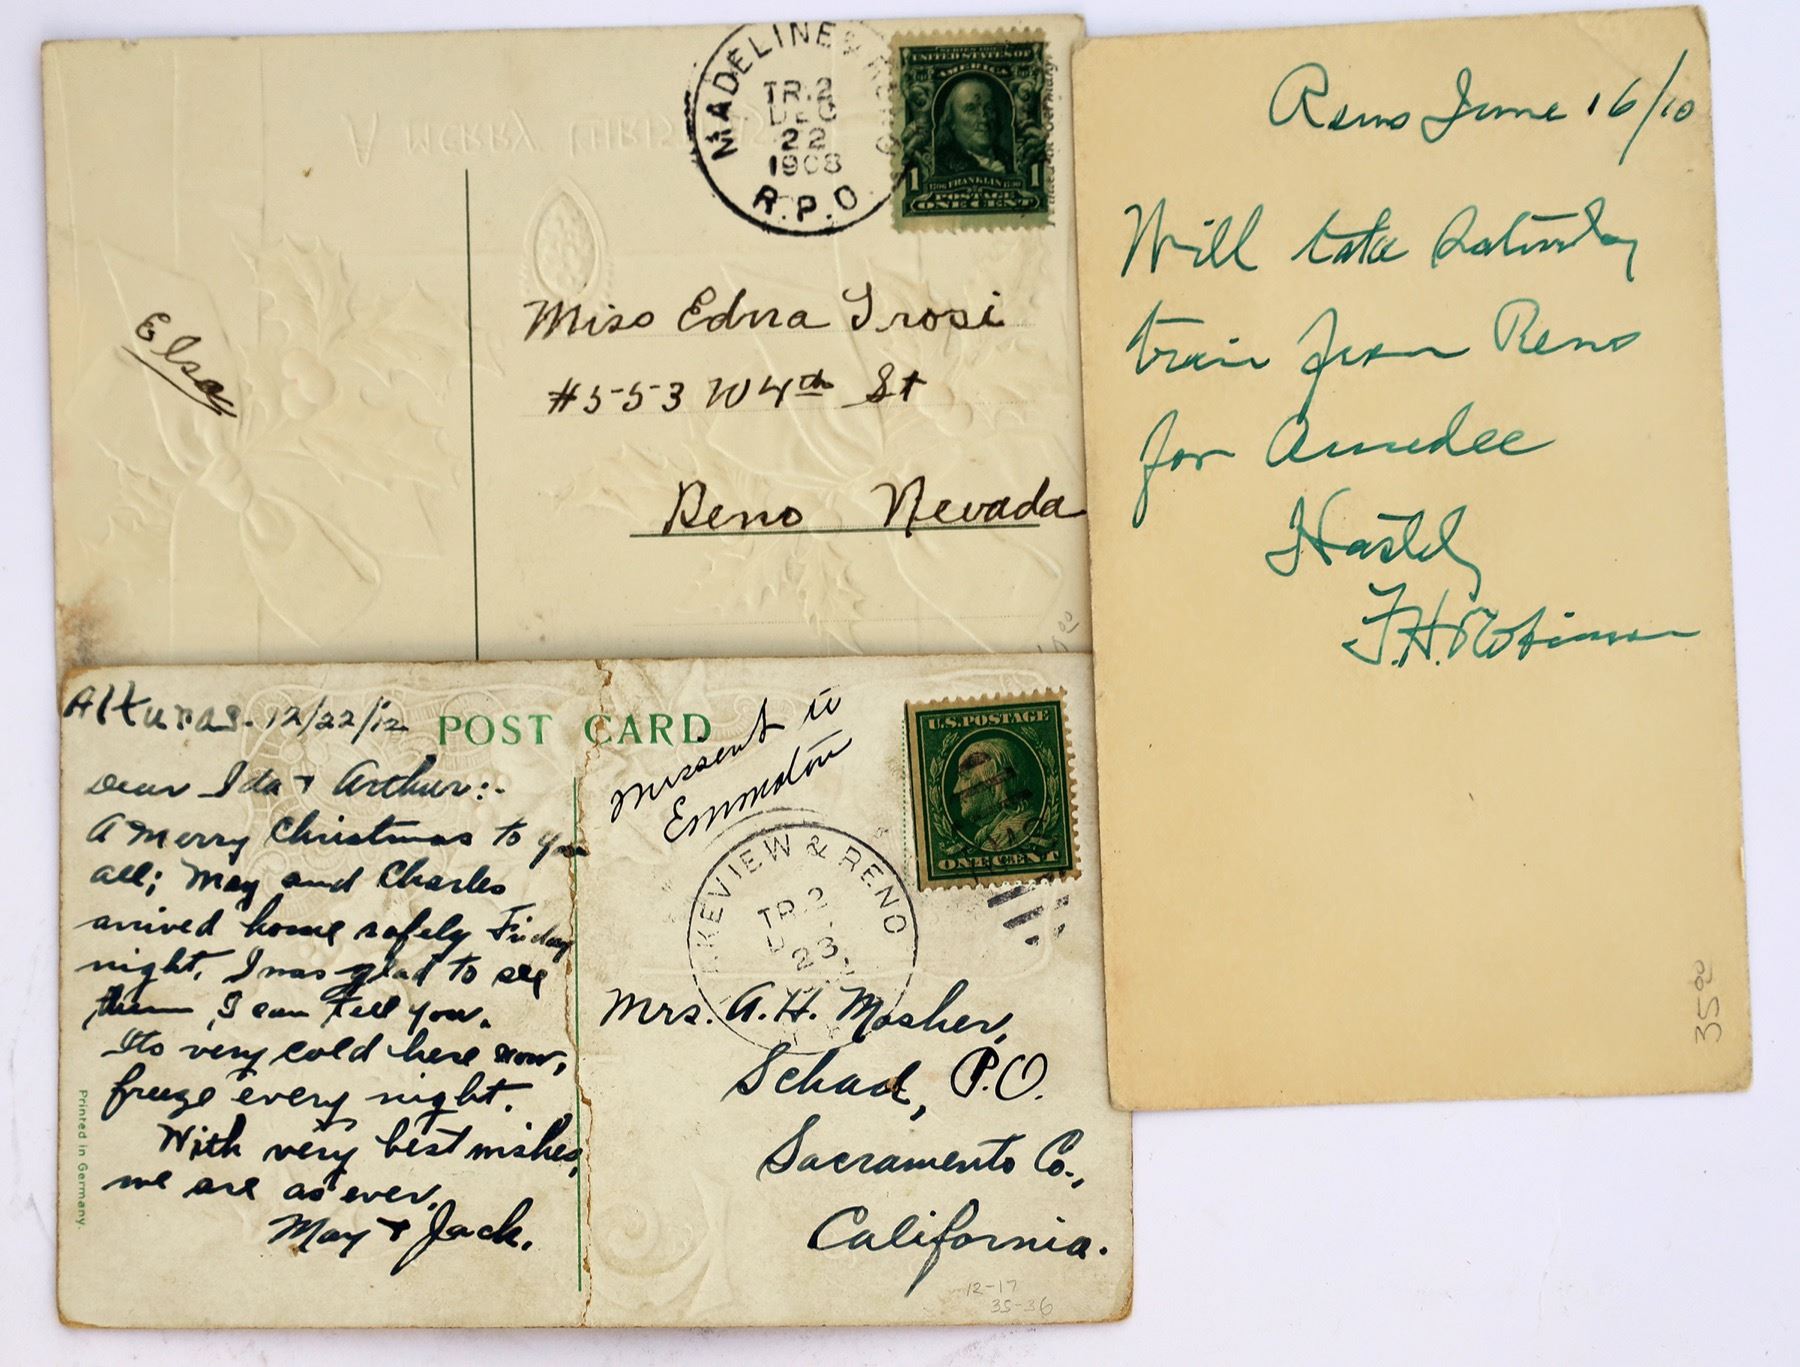 A MERRY CHRISTMAS
MADELINE & RENO
TR. 2
DEC
22
1908
R.P.O.
SERIES 1902
UNITED STATES OF
AMERICA
1 1
1706 FRANKLIN 1790
POSTAGE
ONE CENT
Printed in Germany.
Elsa
Miss Edna Trosi
#553 W 4th St
Reno Nevada
Reno June 16/10
Will take Saturday
train from Reno
for Amedee
Hastily
F.H. Robinson
35 00
Alturas. 12/22/12
POST CARD
Dear Ida + Arthur:-
A Merry Christmas to you
all; May and Charles
arrived home safely Friday
night. I was glad to see
them, I can tell you.
Its very cold here now,
freeze every night.
With very best wishes,
we are as ever,
May + Jack.
Printed in Germany.
missent to
Emmaton
U.S. POSTAGE
ONE CENT
LAKEVIEW & RENO
TR. 2
23
Mrs. A. H. Mosher,
Schad, P.O.
Sacramento Co.,
California.
12-17
35-36